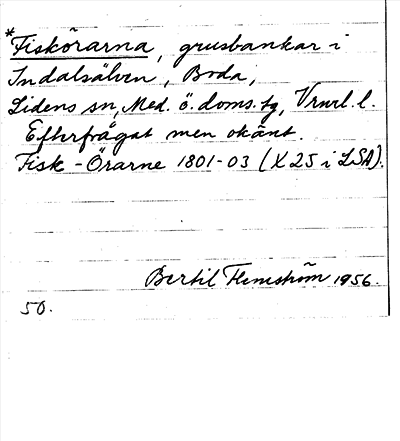 *Fiskörarna, grusbankar i
Indalsälven, Boda,
Lidens sn, Med. ö. doms. tg, Vrnrl. l.
Efterfrågat men okänt.
Fisk-Örarne 1801-03 (X25 i LSA).
Bertil Flemström 1956.
50.